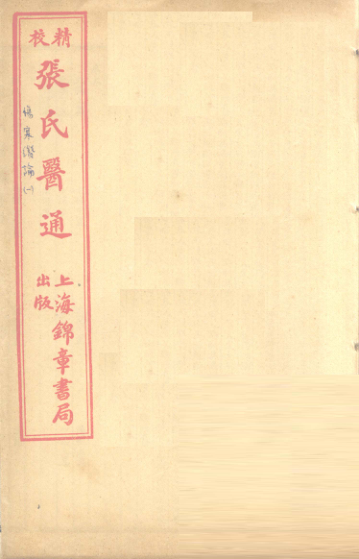 精校
張氏醫通
傷寒論(一)
上海錦章書局
出版